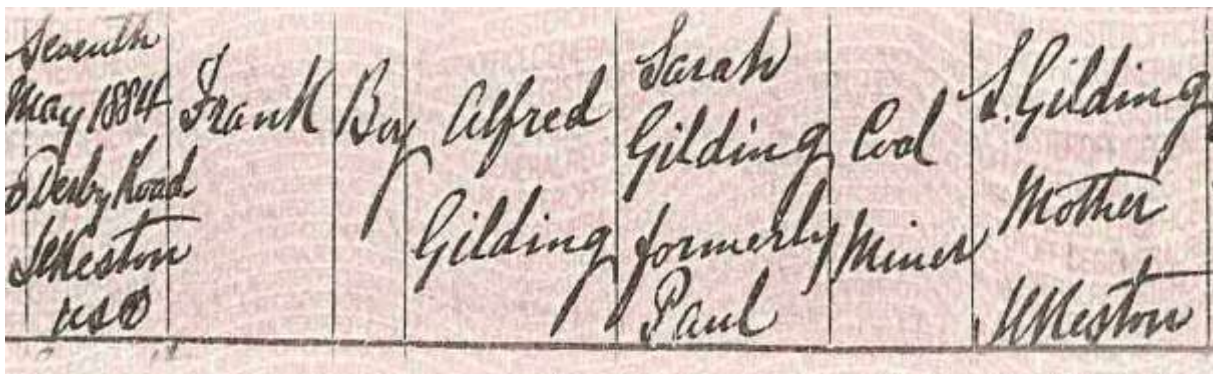 Seventh
May 1884
Derby Road
Ilkeston
USD
Frank
Boy
Alfred
Gilding
Sarah
Gilding
formerly
Paul
Coal
Miner
S. Gilding
Mother
Ilkeston